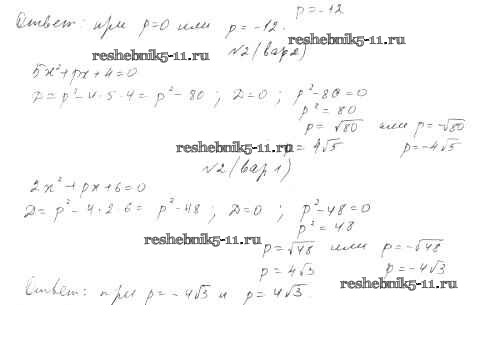 p=-12
Ответ: при p=0 или p=-12.
reshebnik5-11.ru
reshebnik5-11.ru
№2 (вар2)
5x²+px+4=0
D=p²-4·5·4=p²-80; D=0; p²-80=0
p²=80
p=√80 или p=-√80
reshebnik5-11.ru
p=4√5 p=-4√5
№2 (вар1)
2x²+px+6=0
D=p²-4·2·6=p²-48; D=0; p²-48=0
p²=48
reshebnik5-11.ru
p=√48 или p=-√48
p=4√3 p=-4√3
reshebnik5-11.ru
Ответ: при p=-4√3 и p=4√3.